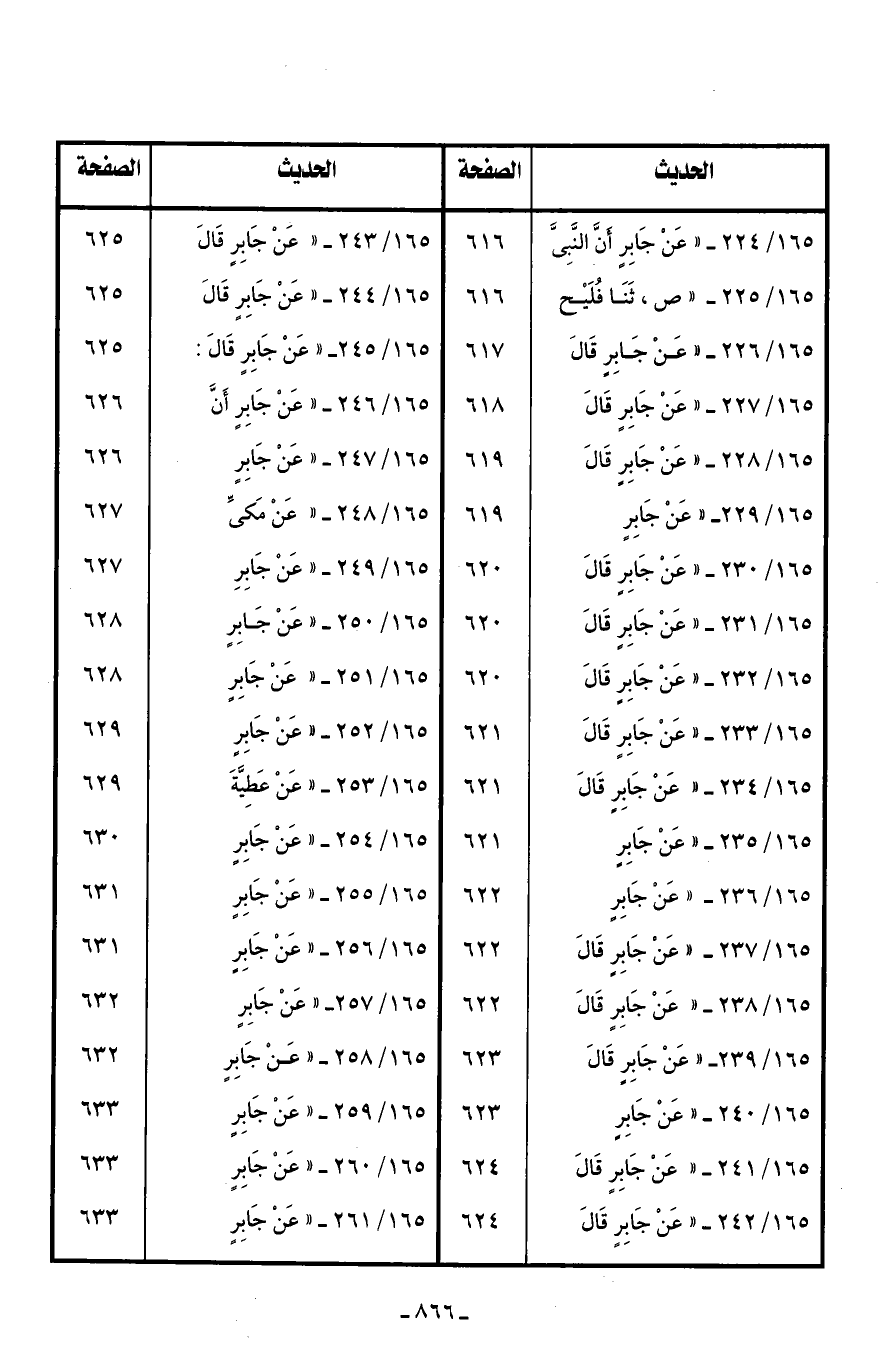 الحديث الصفحة الحديث الصفحة
١٦٥/ ٢٢٤ ـ « عَنْ جَابِرٍ أَنَّ النَّبِىَّ ٦١٦ ١٦٥/ ٢٤٣ ـ « عَنْ جَابِرٍ قَالَ ٦٢٥
١٦٥/ ٢٢٥ ـ « ص ، ثَنَـا فُلَيْـح ٦١٦ ١٦٥/ ٢٤٤ ـ « عَنْ جَابِرٍ قَالَ ٦٢٥
١٦٥/ ٢٢٦ ـ « عَـنْ جَـابِرٍ قَالَ ٦١٧ ١٦٥/ ٢٤٥ـ « عَنْ جَابِرٍ قَالَ : ٦٢٥
١٦٥/ ٢٢٧ ـ « عَنْ جَابِرٍ قَالَ ٦١٨ ١٦٥/ ٢٤٦ ـ « عَنْ جَابِرٍ أَنَّ ٦٢٦
١٦٥/ ٢٢٨ ـ « عَنْ جَابِرٍ قَالَ ٦١٩ ١٦٥/ ٢٤٧ ـ « عَنْ جَابِرٍ ٦٢٦
١٦٥/ ٢٢٩ـ « عَنْ جَابِرٍ ٦١٩ ١٦٥/ ٢٤٨ ـ « عَنْ مَكىٍّ ٦٢٧
١٦٥/ ٢٣٠ ـ « عَنْ جَابِرٍ قَالَ ٦٢٠ ١٦٥/ ٢٤٩ ـ « عَنْ جَابِرٍ ٦٢٧
١٦٥/ ٢٣١ ـ « عَنْ جَابِرٍ قَالَ ٦٢٠ ١٦٥/ ٢٥٠ ـ « عَنْ جَـابِرٍ ٦٢٨
١٦٥/ ٢٣٢ ـ « عَنْ جَابِرٍ قَالَ ٦٢٠ ١٦٥/ ٢٥١ ـ « عَنْ جَابِرٍ ٦٢٨
١٦٥/ ٢٣٣ ـ « عَنْ جَابِرٍ قَالَ ٦٢١ ١٦٥/ ٢٥٢ ـ « عَنْ جَابِرٍ ٦٢٩
١٦٥/ ٢٣٤ ـ « عَنْ جَابِرٍ قَالَ ٦٢١ ١٦٥/ ٢٥٣ ـ « عَنْ عَطِيَّةَ ٦٢٩
١٦٥/ ٢٣٥ ـ « عَنْ جَابِرٍ ٦٢١ ١٦٥/ ٢٥٤ ـ « عَنْ جَابِرٍ ٦٣٠
١٦٥/ ٢٣٦ ـ « عَنْ جَابِرٍ ٦٢٢ ١٦٥/ ٢٥٥ ـ « عَنْ جَابِرٍ ٦٣١
١٦٥/ ٢٣٧ ـ « عَنْ جَابِرٍ قَالَ ٦٢٢ ١٦٥/ ٢٥٦ ـ « عَنْ جَابِرٍ ٦٣١
١٦٥/ ٢٣٨ ـ « عَنْ جَابِرٍ قَالَ ٦٢٢ ١٦٥/ ٢٥٧ـ « عَنْ جَابِرٍ ٦٣٢
١٦٥/ ٢٣٩ـ « عَنْ جَابِرٍ قَالَ ٦٢٣ ١٦٥/ ٢٥٨ ـ « عَـنْ جَابِرٍ ٦٣٢
١٦٥/ ٢٤٠ ـ « عَنْ جَابِرٍ ٦٢٣ ١٦٥/ ٢٥٩ ـ « عَنْ جَابِرٍ ٦٣٣
١٦٥/ ٢٤١ ـ « عَنْ جَابِرٍ قَالَ ٦٢٤ ١٦٥/ ٢٦٠ ـ « عَنْ جَابِرٍ ٦٣٣
١٦٥/ ٢٤٢ ـ « عَنْ جَابِرٍ قَالَ ٦٢٤ ١٦٥/ ٢٦١ ـ « عَنْ جَابِرٍ ٦٣٣
ـ ٨٦٦ ـ